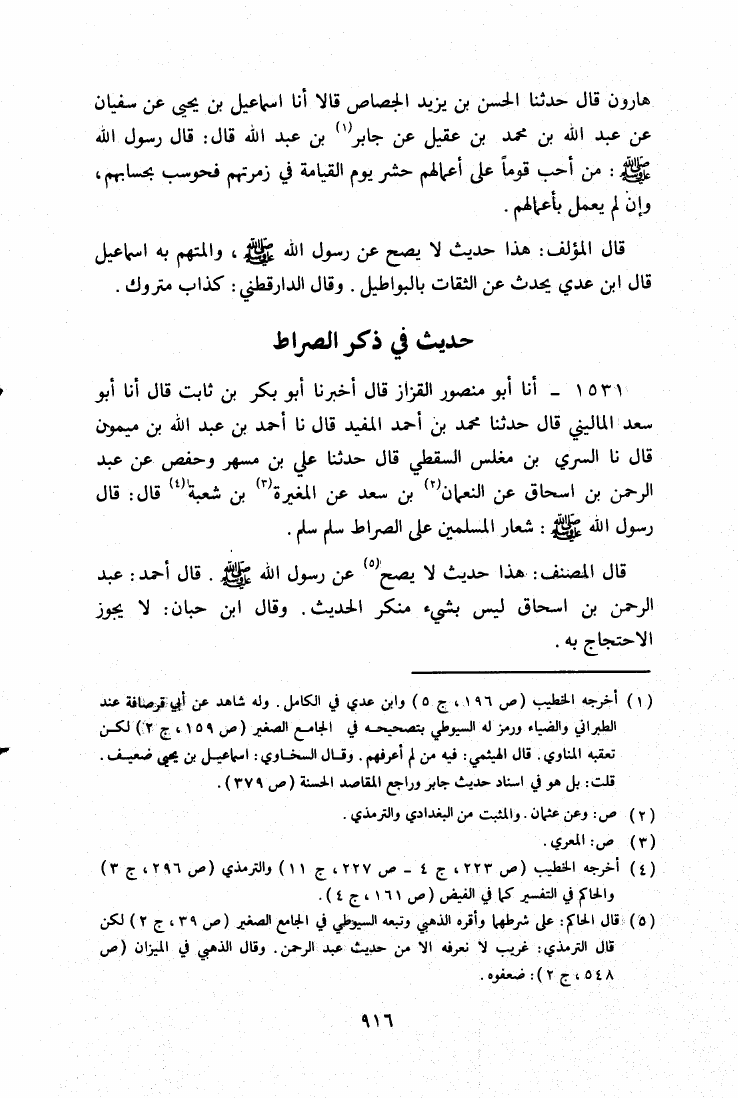 هارون قال حدثنا الحسن بن يزيد الجصاص قالا أنا اسماعيل بن يحيى عن سفيان
عن عبد الله بن محمد بن عقيل عن جابر(١) بن عبد الله قال: قال رسول الله
ﷺ: من أحب قوماً على أعمالهم حشر يوم القيامة في زمرتهم فحوسب بحسابهم،
وإن لم يعمل بأعمالهم.
قال المؤلف: هذا حديث لا يصح عن رسول الله ﷺ، والمتهم به اسماعيل
قال ابن عدي يحدث عن الثقات بالبواطيل. وقال الدارقطني: كذاب متروك.
حديث في ذكر الصراط
١٥٣١ - أنا أبو منصور القزاز قال أخبرنا أبو بكر بن ثابت قال أنا أبو
سعد الماليني قال حدثنا محمد بن أحمد المفيد قال نا أحمد بن عبد الله بن ميمون
قال نا السري بن مغلس السقطي قال حدثنا علي بن مسهر وحفص عن عبد
الرحمن بن اسحاق عن النعمان(٢) بن سعد عن المغيرة(٣) بن شعبة(٤) قال: قال
رسول الله ﷺ: شعار المسلمين على الصراط سلم سلم.
قال المصنف: هذا حديث لا يصح(٥) عن رسول الله ﷺ. قال أحمد: عبد
الرحمن بن اسحاق ليس بشيء منكر الحديث. وقال ابن حبان: لا يجوز
الاحتجاج به.
(١) أخرجه الخطيب (ص ١٩٦، ج ٥) وابن عدي في الكامل. وله شاهد عن أبي قرصافة عند
الطبراني والضياء ورمز له السيوطي بتصحيحه في الجامع الصغير (ص ١٥٩، ج ٢) لكن
تعقبه المناوي. قال الهيثمي: فيه من لم أعرفهم. وقال السخاوي: اسماعيل بن يحيى ضعيف.
قلت: بل هو في اسناد حديث جابر وراجع المقاصد الحسنة (ص ٣٧٩).
(٢) ص: وعن عثمان. والمثبت من البغدادي والترمذي.
(٣) ص: المعري.
(٤) أخرجه الخطيب (ص ٢٢٣، ج ٤ - ص ٢٢٧، ج ١١) والترمذي (ص ٢٩٦، ج ٣)
والحاكم في التفسير كما في الفيض (ص ١٦١، ج ٤).
(٥) قال الحاكم: على شرطهما وأقره الذهبي وتبعه السيوطي في الجامع الصغير (ص ٣٩، ج ٢) لكن
قال الترمذي: غريب لا نعرفه الا من حديث عبد الرحمن. وقال الذهبي في الميزان (ص
٥٤٨، ج ٢): ضعفوه.
٩١٦